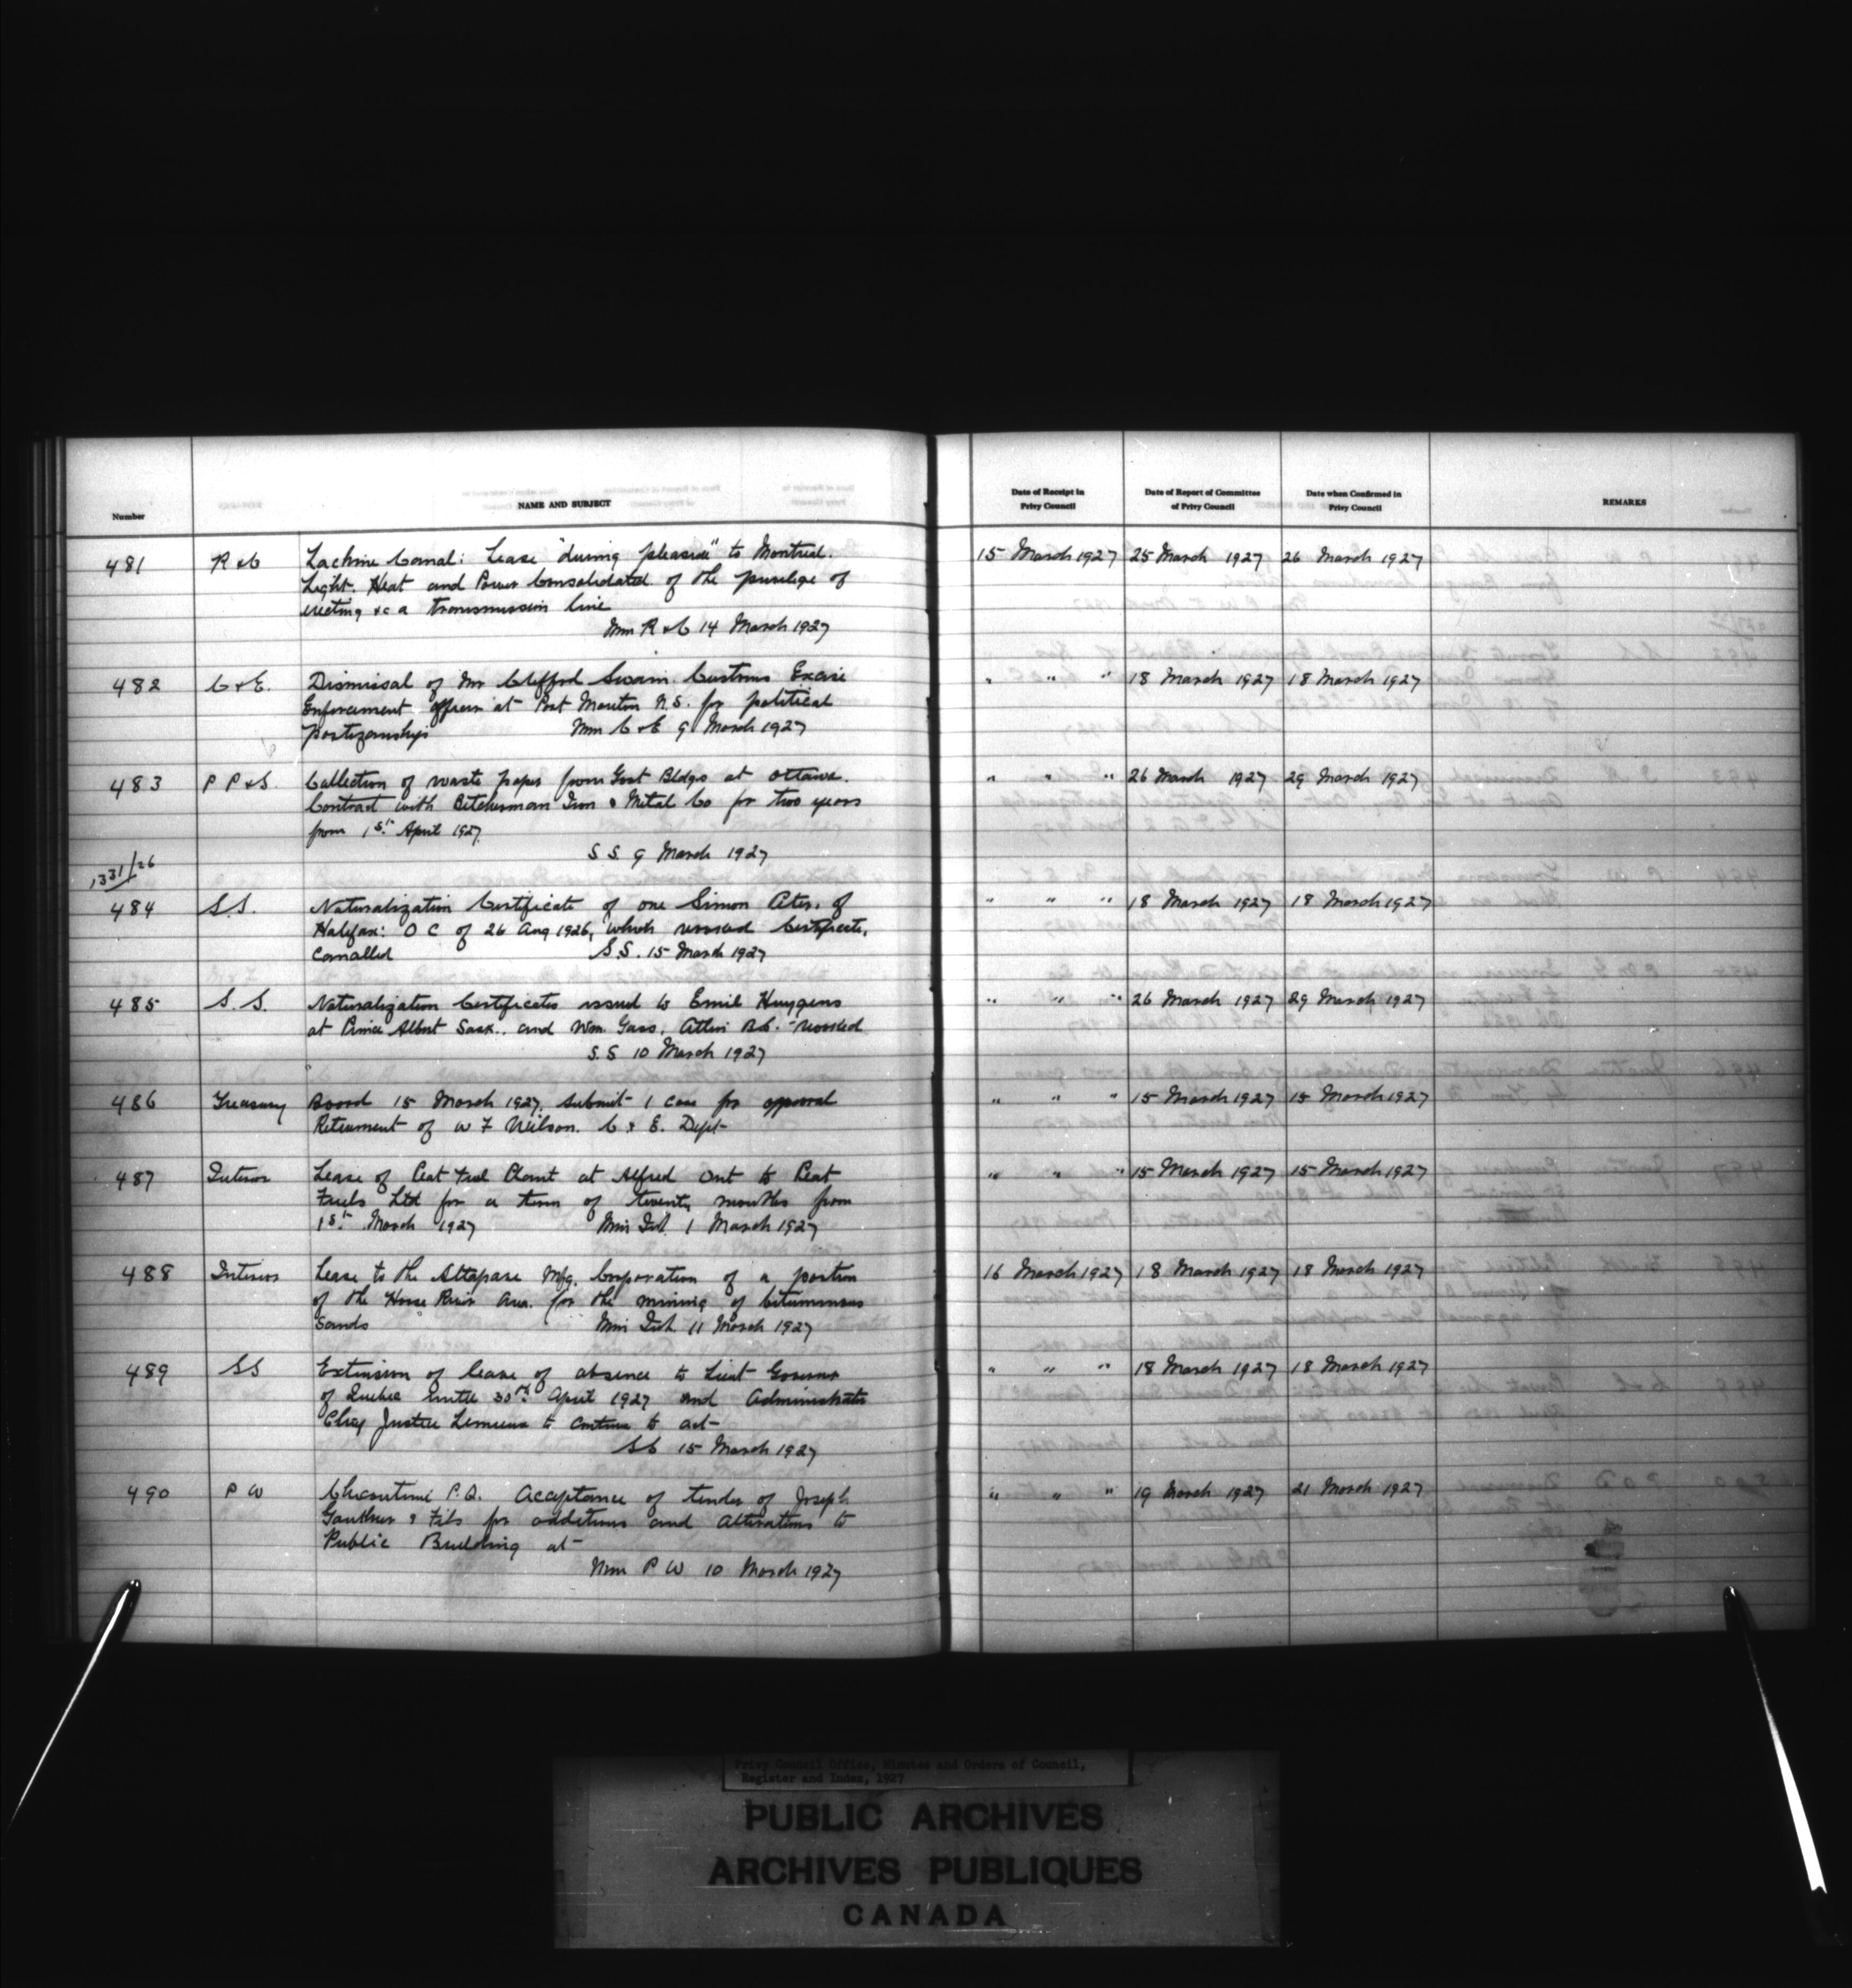 Number
NAME AND SUBJECT
Date of Receipt in
Privy Council
Date of Report of Committee
of Privy Council
Date when Confirmed in
Privy Council
REMARKS
481 R & C Lachine Canal: Lease "during pleasure" to Montreal. 15 March 1927 25 March 1927 26 March 1927
Light, Heat and Power Consolidated of the privilege of
erecting &c a transmission line
Min R & C 14 March 1927
482 C & E. Dismissal of Mr Clifford Swain Customs Excise " " " 18 March 1927 18 March 1927
Enforcement officer at Port Mouton N.S. for political
partizanship Min C & E 9 March 1927
483 P P & S. Collection of waste paper from Govt Bldgs at Ottawa. " " " 26 March 1927 29 March 1927
Contract with Iron & Metal Co for two years
from 1st April 1927
S S. 9 March 1927
1331/26
484 S.S. Naturalization Certificate of one Simon Ater, of " " " 18 March 1927 18 March 1927
Halifax: O C of 26 Aug 1926, which revoked Certificate,
Cancelled S.S. 15 March 1927
485 S.S. Naturalization Certificates issued to Emil Huygens " " " 26 March 1927 29 March 1927
at Prince Albert Sask., and Wm. Gass, Atlin B.C. - revoked
S.S 10 March 1927
486 Treasury Board 15 March 1927, submit 1 case for approval " " " 15 March 1927 15 March 1927
Retirement of W F Neilson. C & E. Dept
487 Interior Lease of Peat Fuel Plant at Alfred Ont to Peat " " " 15 March 1927 15 March 1927
Fuels Ltd for a term of twenty months from
1st March 1927 Min Int. 1 March 1927
488 Interior Lease to the Mfg. Corporation of a portion 16 March 1927 18 March 1927 18 March 1927
of the Horse River Area. for the mining of bituminous
sands Min Int. 11 March 1927
489 SS Extension of leave of absence to Lieut Governor " " " 18 March 1927 18 March 1927
of Quebec until 30th April 1927 and Administrator
Chief Justice Lemieux to continue to act
15 March 1927
490 P W Chicoutimi P.Q. Acceptance of tender of Joseph " " " 19 March 1927 21 March 1927
Gauthier & Fils for additions and alterations to
Public Building at-
Min P W 10 March 1927
Privy Council Office, Minutes and Orders of Council,
Register and Index, 1927
PUBLIC ARCHIVES
ARCHIVES PUBLIQUES
CANADA